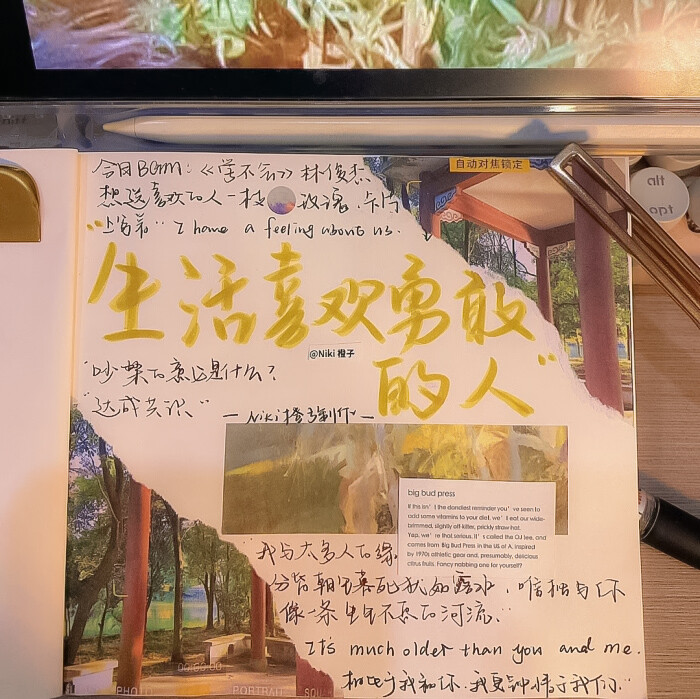 今日BGM：《学不会》林俊杰
自动对焦锁定
想送喜欢的人一枝 玫瑰，卡片
上写着 "I have a feeling about us.
alt
opt
"生活喜欢勇敢
的人"
@Niki 橙子
"吵架的意义是什么？
"达成共识"
— Niki橙子制作 —
big bud press
If this isn't the dandiest reminder you've seen to
add some vitamins to your diet, we'll eat our wide-
brimmed, slightly off-kilter, prickly straw hat.
Yep, we're that serious. It's called the OJ tee, and
comes from Big Bud Press in the US of A. Inspired
by 1970s athletic gear and, presumably, delicious
citrus fruits. Fancy nabbing one for yourself?
"我与太多人的缘
分皆朝生暮死犹如露水，唯独与你
像一条生生不息的河流."
It's much older than you and me.
相比于我和你，我更钟情于我们."
00:00:00
PHOTO
PORTRAIT